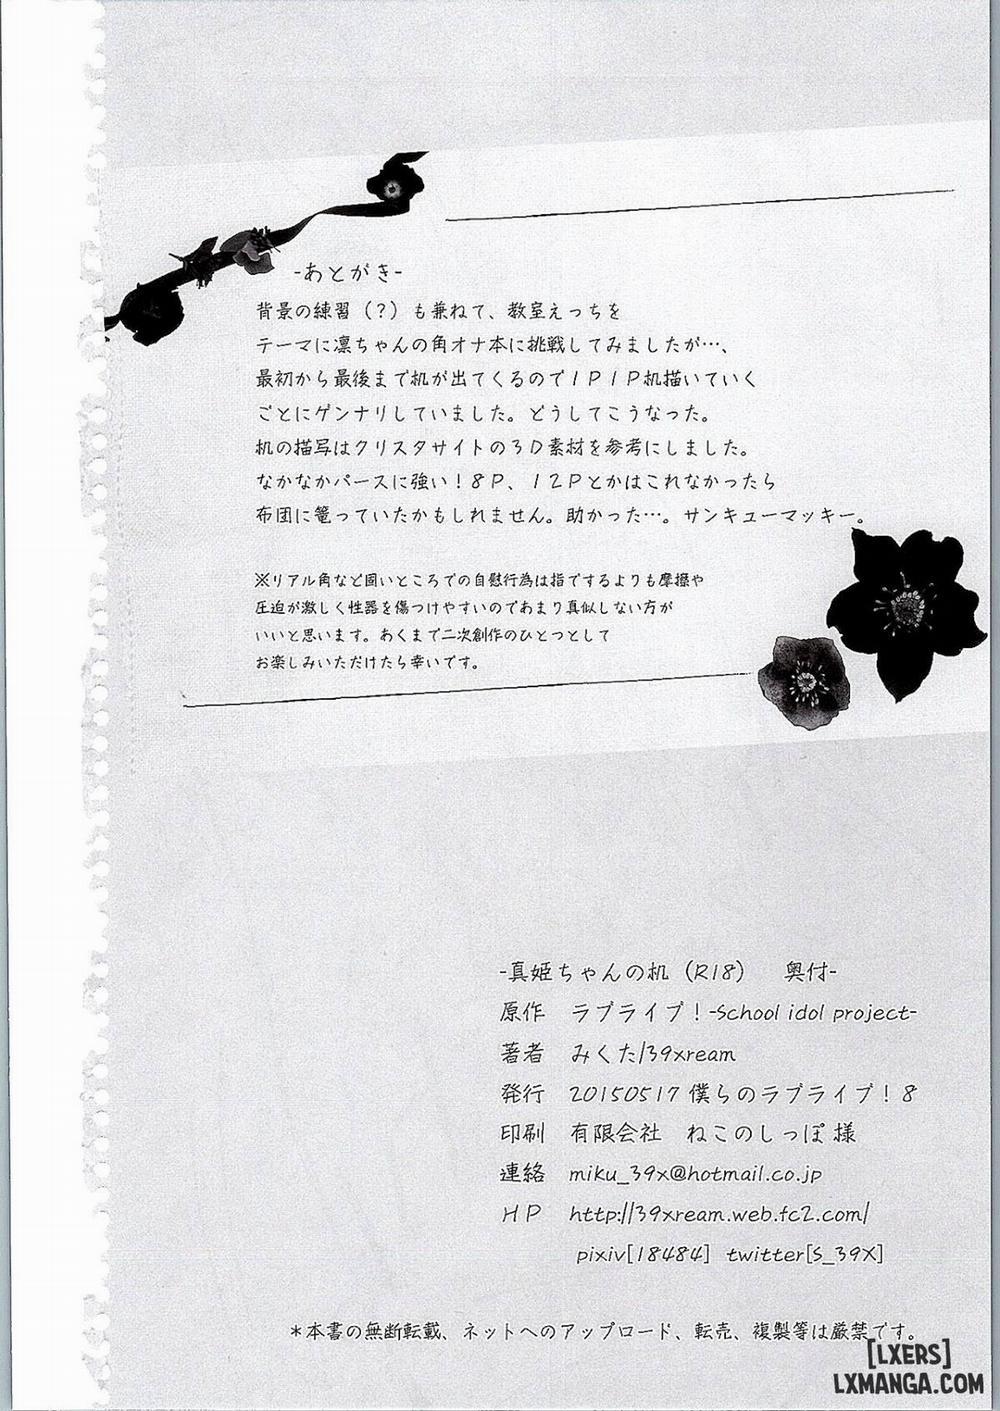 -あとがき-
背景の練習（？）も兼ねて、教室えっちを
テーマに凛ちゃんの角オナ本に挑戦してみましたが…、
最初から最後まで机が出てくるので１Ｐ１Ｐ机描いていく
ごとにゲンナリしていました。どうしてこうなった。
机の描写はクリスタサイトの３Ｄ素材を参考にしました。
なかなかパースに強い！８Ｐ、１２Ｐとかはこれなかったら
布団に篭っていたかもしれません。助かった…。サンキューマッキー。
※リアル角など固いところでの自慰行為は指でするよりも摩擦や
圧迫が激しく性器を傷つけやすいのであまり真似しない方が
いいと思います。あくまで二次創作のひとつとして
お楽しみいただけたら幸いです。
-真姫ちゃんの机（R18） 奥付-
原作 ラブライブ！-School idol project-
著者 みくた/39xream
発行 20150517 僕らのラブライブ！8
印刷 有限会社 ねこのしっぽ 様
連絡 miku_39x@hotmail.co.jp
ＨＰ http://39xream.web.fc2.com/
pixiv[18484] twitter[S_39X]
＊本書の無断転載、ネットへのアップロード、転売、複製等は厳禁です。
[LXERS]
LXMANGA.COM